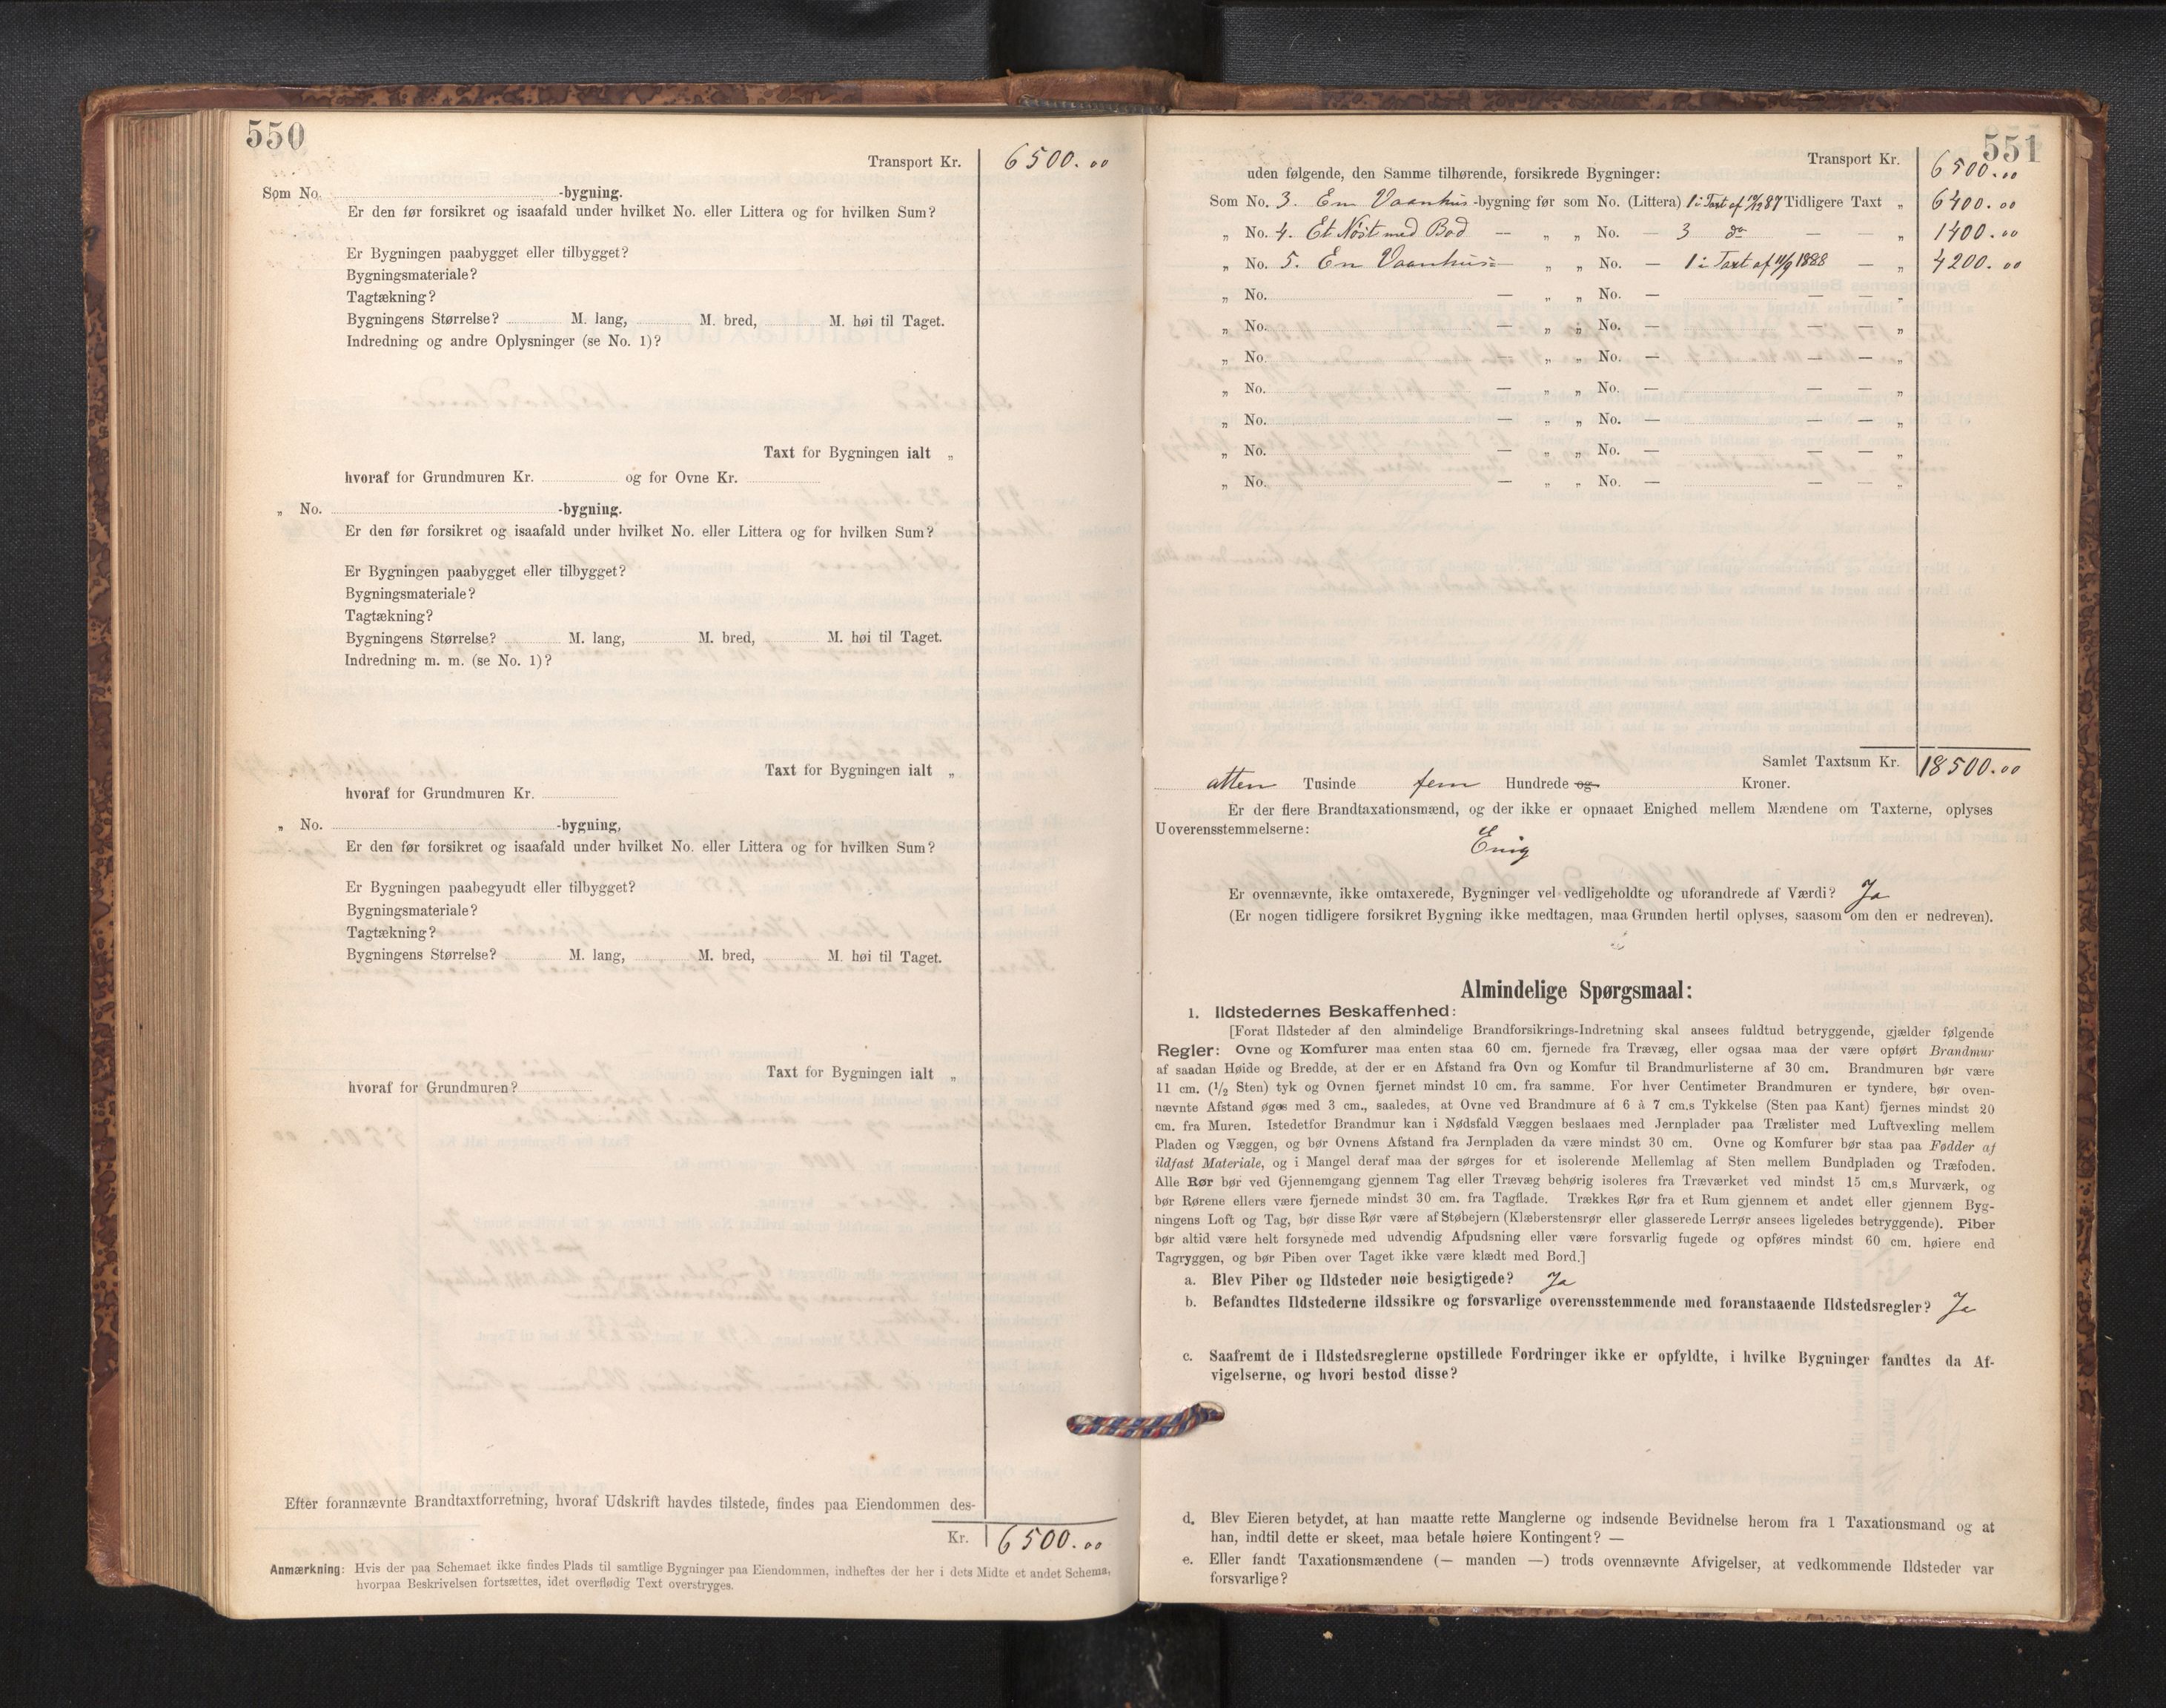 550
Transport Kr. 6500.00
Som No. -bygning.
Er den før forsikret og isaafald under hvilket No. eller Littera og for hvilken Sum?
Er Bygningen paabygget eller tilbygget?
Bygningsmateriale?
Tagtækning?
Bygningens Størrelse? M. lang, M. bred, M. høi til Taget.
Indredning og andre Oplysninger (se No. 1)?
Taxt for Bygningen ialt „
hvoraf for Grundmuren Kr. og for Ovne Kr.
„ No. -bygning.
Er den før forsikret og isaafald under hvilket No. eller Littera og for hvilken Sum?
Er Bygningen paabygget eller tilbygget?
Bygningsmateriale?
Tagtækning?
Bygningens Størrelse? M. lang, M. bred, M. høi til Taget.
Indredning m. m. (se No. 1)?
Taxt for Bygningen ialt „
hvoraf for Grundmuren Kr.
„ No. -bygning,
Er den før forsikret og isaafald under hvilket No. eller Littera og for hvilken Sum?
Er Bygningen paabegyudt eller tilbygget?
Bygningsmateriale?
Tagtækning?
Bygningens Størrelse? M. lang, M. bred, M. høi til Taget.
Taxt for Bygningen ialt „
hvoraf for Grundmuren?
Efter forannævnte Brandtaxtforretning, hvoraf Udskrift havdes tilstede, findes paa Eiendommen des-
Kr. 6500.00
Anmærkning: Hvis der paa Schemaet ikke findes Plads til samtlige Bygninger paa Eiendommen, indheftes der her i dets Midte et andet Schema,
hvorpaa Beskrivelsen fortsættes, idet overflødig Text overstryges.
551
Transport Kr. 6500.00
uden følgende, den Samme tilhørende, forsikrede Bygninger:
Som No. 3. En Vaanhus-bygning før som No. (Littera) 1 i Taxt af 87 Tidligere Taxt „ 6400.00
„ No. 4. Et Nöst med Bod — „ „ No. — 3 do — — „ 1400.00
„ No. 5. En Vaanhus — „ „ No. — 1 i Taxt af 11/9 1888 — „ 4200.00
„ No. — „ „ No. — — — „
„ No. — „ „ No. — — — „
„ No. — „ „ No. — — — „
„ No. — „ „ No. — — — „
„ No. — „ „ No. — — — „
„ No. — „ „ No. — — — „
„ No. — „ „ No. — — — „
Samlet Taxtsum Kr. 18500.00
atten Tusinde fem Hundrede og Kroner.
Er der flere Brandtaxationsmænd, og der ikke er opnaaet Enighed mellem Mændene om Taxterne, oplyses
Uoverensstemmelserne:
Enig
Er ovennævnte, ikke omtaxerede, Bygninger vel vedligeholdte og uforandrede af Værdi? Ja
(Er nogen tidligere forsikret Bygning ikke medtagen, maa Grunden hertil oplyses, saasom om den er nedreven).
Almindelige Spørgsmaal:
1. Ildstedernes Beskaffenhed:
[Forat Ildsteder af den almindelige Brandforsikrings-Indretning skal ansees fuldtud betryggende, gjælder følgende
Regler: Ovne og Komfurer maa enten staa 60 cm. fjernede fra Trævæg, eller ogsaa maa der være opført Brandmur
af saadan Høide og Bredde, at der er en Afstand fra Ovn og Komfur til Brandmurlisterne af 30 cm. Brandmuren bør være
11 cm. (1/2 Sten) tyk og Ovnen fjernet mindst 10 cm. fra samme. For hver Centimeter Brandmuren er tyndere, bør oven-
nævnte Afstand øges med 3 cm., saaledes, at Ovne ved Brandmure af 6 à 7 cm.s Tykkelse (Sten paa Kant) fjernes mindst 20
cm. fra Muren. Istedetfor Brandmur kan i Nødsfald Væggen beslaaes med Jernplader paa Trælister med Luftvexling mellem
Pladen og Væggen, og bør Ovnens Afstand fra Jernpladen da være mindst 30 cm. Ovne og Komfurer bør staa paa Fødder af
ildfast Materiale, og i Mangel deraf maa der sørges for et isolerende Mellemlag af Sten mellem Bundpladen og Træfoden.
Alle Rør bør ved Gjennemgang gjennem Tag eller Trævæg behørig isoleres fra Træværket ved mindst 15 cm.s Murværk, og
bør Rørene ellers være fjernede mindst 30 cm. fra Tagflade. Trækkes Rør fra et Rum gjennem et andet eller gjennem Byg-
ningens Loft og Tag, bør disse Rør være af Støbejern (Klæberstensrør eller glasserede Lerrør ansees ligeledes betryggende). Piber
bør altid være helt forsynede med udvendig Afpudsning eller være forsvarlig fugede og opføres mindst 60 cm. høiere end
Tagryggen, og bør Piben over Taget ikke være klædt med Bord.]
a. Blev Piber og Ildsteder nøie besigtigede? Ja
b. Befandtes Ildstederne ildssikre og forsvarlige overensstemmende med foranstaaende Ildstedsregler? Ja
c. Saafremt de i Ildstedsreglerne opstillede Fordringer ikke er opfyldte, i hvilke Bygninger fandtes da Af-
vigelserne, og hvori bestod disse?
d. Blev Eieren betydet, at han maatte rette Manglerne og indsende Bevidnelse herom fra 1 Taxationsmand og at
han, indtil dette er skeet, maa betale høiere Kontingent? —
e. Eller fandt Taxationsmændene (— manden —) trods ovennævnte Afvigelser, at vedkommende Ildsteder var
forsvarlige?